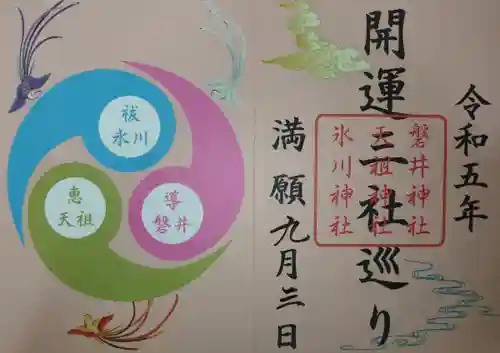 開運三社巡り
令和五年
満願九月三日
磐井神社
天祖神社
氷川神社
祓
氷川
導
磐井
恵
天祖